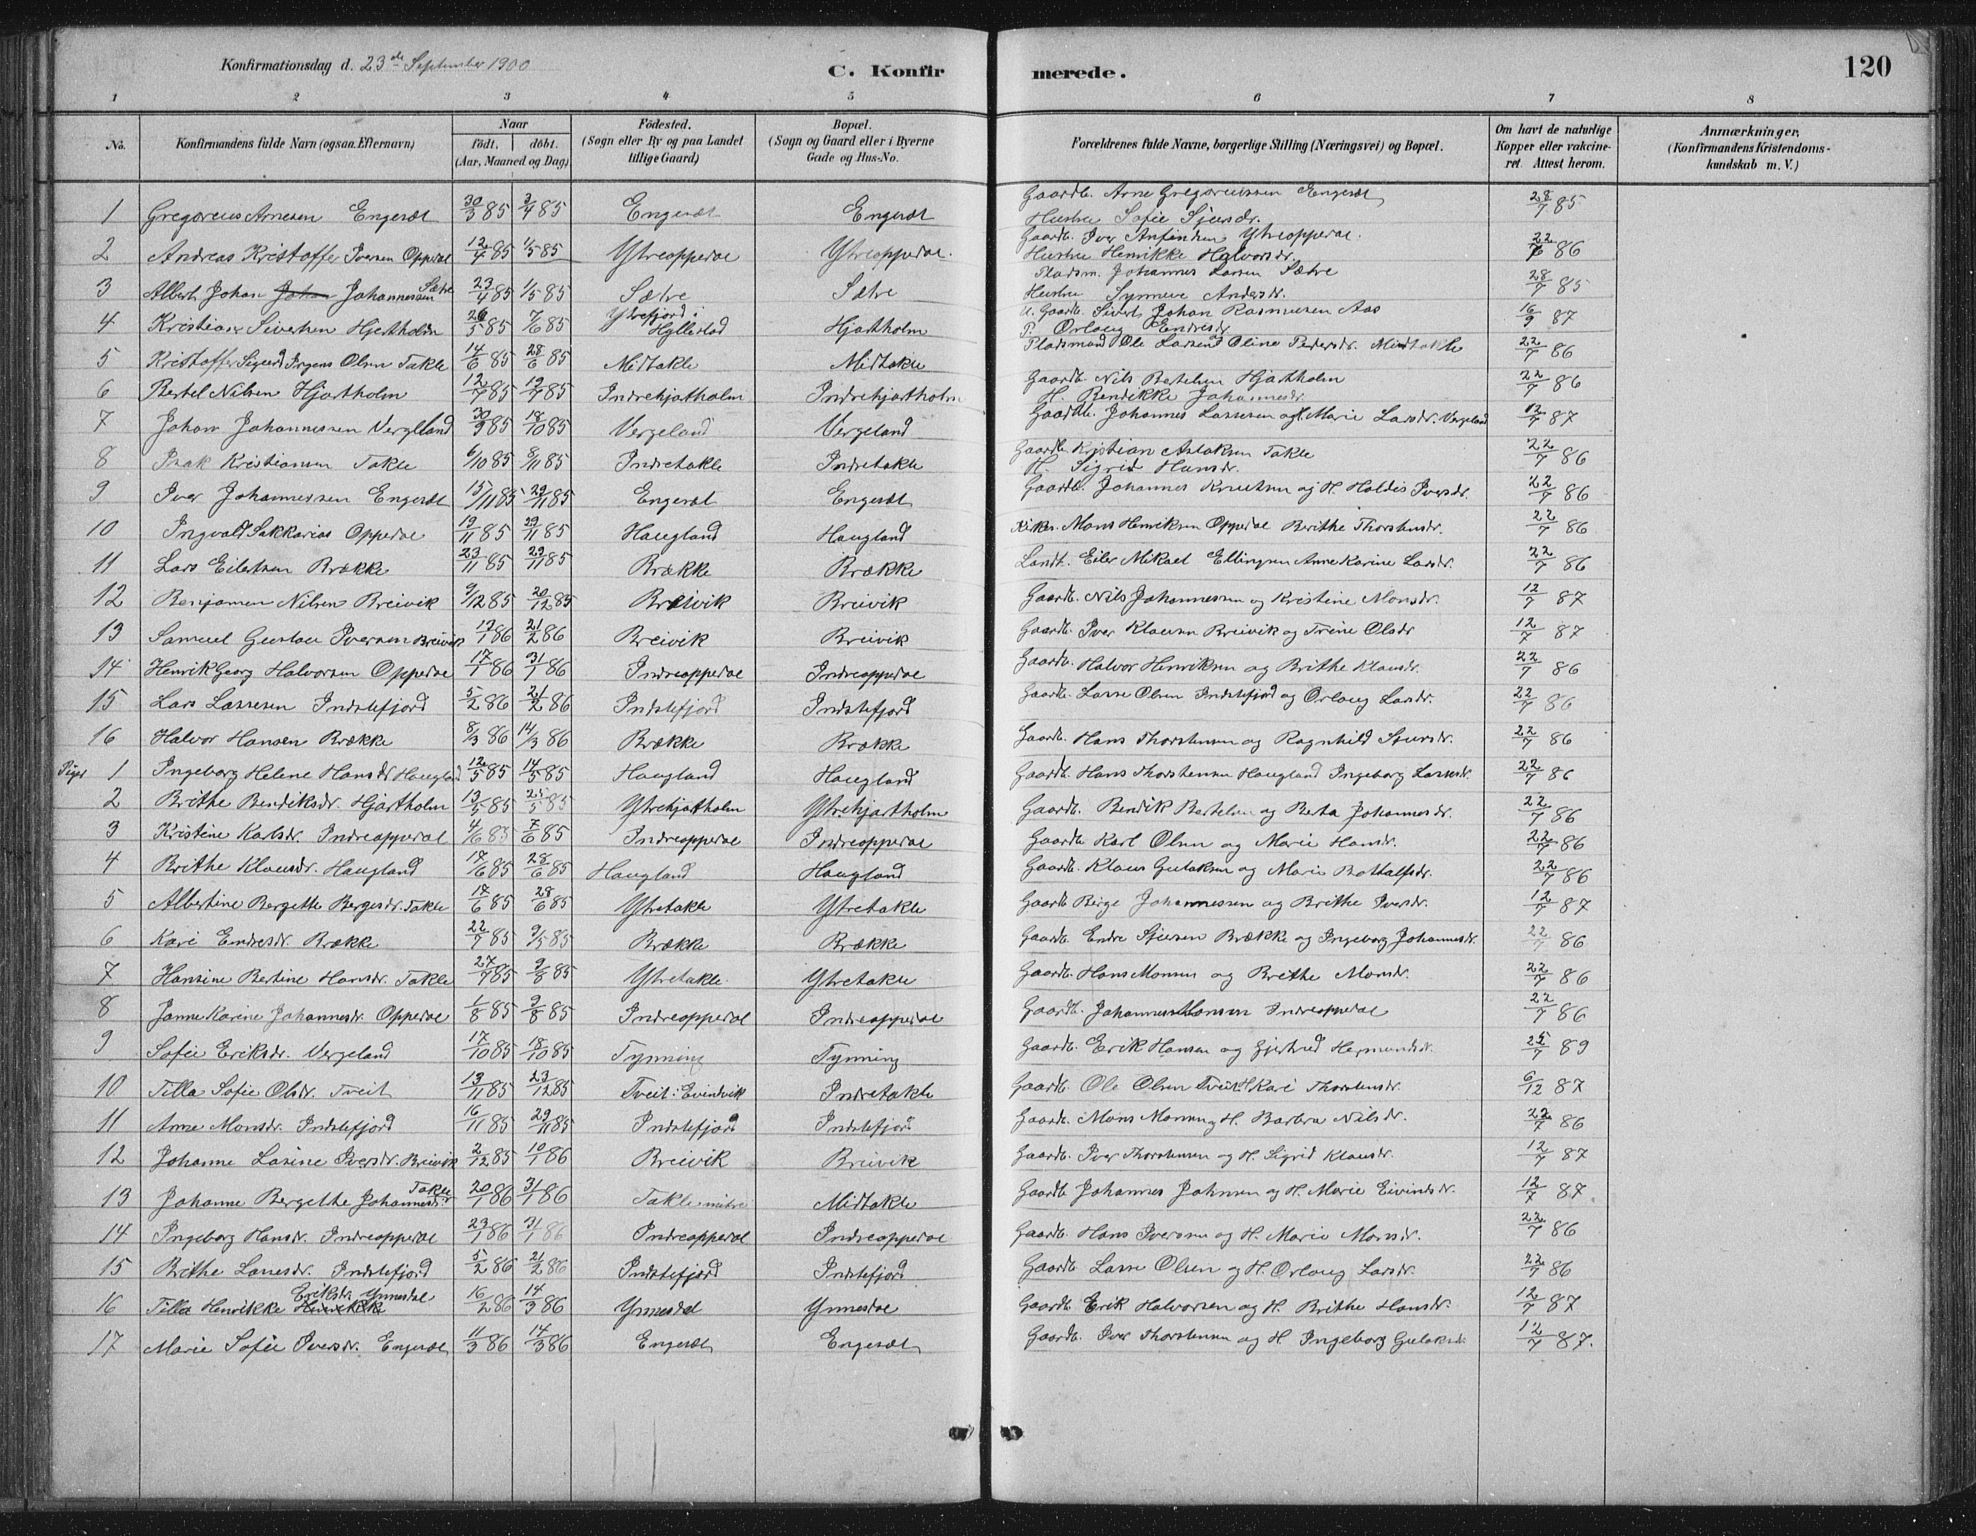 Konfirmationsdag d. 23de September 1900
C. Konfirmerede.
120
1 2 3 4 5 6 7 8
No.
Konfirmandens fulde Navn (ogsaa Efternavn)
Naar
födt. döbt.
(Aar, Maaned og Dag)
Födested.
(Sogn eller By og paa Landet tillige Gaard)
Bopæl.
(Sogn og Gaard eller i Byerne Gade og Hus-No.
Forældrenes fulde Navne, borgerlige Stilling (Næringsvei) og Bopæl.
Om havt de naturlige Kopper eller vakcineret. Attest herom.
Anmærkninger,
(Konfirmandens Kristendomskundskab m. V.)
1 Gregoreus Arnesen Engesæt 30/3 85 3/4 85 Engesæt Engesæt Gaardb. Arne Gregoreussen Engesæt Hustru Sofie Sjursdr. 28/7 85
2 Andreas Kristoffer Iversen Oppedal 12/4 85 1/5 85 Ytreoppedal Ytreoppedal. Gaardb. Iver Anfindsen Ytreoppedal. Hustru Henrikke Halvorsdr. 22/7 86
3 Albert Johan Johan Johannessen Sætre 23/4 85 1/5 85 Sætre Sætre Pladsm. Johannes Larsen Sætre Hustru Synneve Andersdr. 28/7 85
4 Kristian Sivertsen Hjertholm 26/5 85 7/6 85 Ytrefjord i Hyllestad Hjartholm U. Gaardb. Sivert Johan Rasmussen Aas P. Orlaug Endresdr. 16/9 87
5 Kristoffer Sigurd Irgens Olsen Takle 14/6 85 28/6 85 Midtakle Midtakle Pladsmand Ole Larsen Oline Pedersdr. Midtakle 22/7 86
6 Bertel Nilsen Hjartholm 12/7 85 19/7 85 Indrehjartholm Indrehjartholm Gaardb. Nils Bertelsen Hjartholm H. Bendikke Johannesdr. 22/7 86
7 Johan Johannessen Vergeland 30/9 85 18/10 85 Vergeland Vergeland Gaardb. Johannes Lassesen og H. Marie Larsdr. Vergeland 12/7 87
8 Isak Kristiansen Takle 6/10 85 8/11 85 Indretakle Indretakle Gaardb. Kristian Aslaksen Takle H. Sigrid Hansdr. 22/7 86
9 Iver Johannessen Engesæt 15/11 85 29/11 85 Engesæt Engesæt Gaardb. Johannes Knutsen og H. Haldis Iversdr. 22/7 86
10 Ingvald Sakkarias Oppedal 19/11 85 29/11 85 Haugland Haugland Mons Henriksen Oppedal Brithe Thorstensdr. 22/7 86
11 Lars Eilertsen Brække 23/11 85 29/11 85 Brække Brække Landh. Eiler Mikael Ellingsen Anne Karine Larsdr. 22/7 86
12 Benjamen Nilsen Breivik 9/12 85 20/12 85 Breivik Breivik Gaardb. Nils Johannessen og Kristine Monsdr. 12/7 87
13 Samuel Gustav Iversen Breivik 12/1 86 21/2 86 Breivik Breivik Gaardb. Iver Klausen Breivik og Trine Olsdr 12/7 87
14 Henrik Georg Halvorsen Oppedal 17/1 86 31/1 86 Indreoppedal Indreoppedal Gaardb. Halvor Henriksen og Brithe Klausdr. 22/7 86
15 Lars Lassesen Indstefjord 5/2 86 21/2 86 Indstefjord Indstefjord Gaardb. Lasse Olsen Indstefjord og Orlaug Larsdr. 22/7 86
16 Halvor Hansen Brække 8/3 86 14/3 86 Brække Brække Gaardb. Hans Thorstensen og Ragnhild Sjursdr. 22/7 86
Piger 1 Ingeborg Helene Hansdr. Haugland 12/5 85 14/5 85 Haugland Haugland Gaardb. Hans Thorstensen Haugland Ingeborg Larsdr. 22/7 86
2 Brithe Bendiksdr. Hjartholm 13/5 85 25/5 85 Ytrehjartholm Ytrehjartholm Gaardb. Bendik Bertelsen og Berta Johannesdr. 22/7 86
3 Kristine Karlsdr. Indreoppedal 4/6 85 7/6 85 Indreoppedal Indreoppedal Gaardb. Karl Olsen og Marie Hansdr. 22/7 86
4 Brithe Klausdr. Haugland 17/6 85 28/6 85 Haugland Haugland Gaardb. Klaus Gulaksen og Marie Bothalfsdr. 22/7 86
5 Albertine Bergette Bergesdr. Takle 17/6 85 28/6 85 Ytretakle Ytretakle Gaardb. Berge Johannessen og Brithe Iversdr. 12/7 87
6 Kari Endresdr. Brække 22/7 85 9/5 85 Brække Brække Gaardb. Endre Sjursen Brække og Ingeborg Johannesdr. 22/7 86
7 Hansine Bertine Hansdr. Takle 27/7 85 9/8 85 Ytretakle. Ytretakle Gaardb. Hans Monsen og Brithe Monsdr. 22/7 86
8 Janne Karine Johannesdr. Oppedal 1/8 85 9/8 85 Indreoppedal Indreoppedal Gaardb. Johannes Monsen Indreoppedal 22/7 86
9 Sofie Eriksdr. Vergeland 17/10 85 18/10 85 Tynning Tynning Gaardb. Erik Hansen og Gjertrud Hermundsdr. 25/7 89
10 Tilla Sofie Olsdr. Tveit 13/11 85 23/12 85 Tveit i Evindvik Indretakle Gaardb. Ole Olsen Tveit H. Kari Thorstensdr. 6/12 87
11 Anne Monsdr. Indstefjord 16/11 85 29/11 85 Indstefjord Indstefjord Gaardb. Mons Monsen og H. Barbra Nilsdr. 22/7 86
12 Johanne Lasine Iversdr. Breivik 2/12 85 10/1 86 Breivik Breivik Gaardb. Iver Thorstensen og H. Sigrid Klausdr. 12/7 87
13 Johanne Bergethe Johannesdr. Takle 20/1 86 31/1 86 Takle midtre Midtakle Gaardb. Johannes Johnsen og H. Marie Eivindsdr. 12/7 87
14 Ingeborg Hansdr. Indreoppedal 23/1 86 31/1 86 Indreoppedal Indreoppedal Gaardb. Hans Iversen og H. Marie Monsdr. 22/7 86
15 Brithe Lassesdr. Indstefjord 5/2 86 21/2 86 Indstefjord Indstefjord Gaardb. Lasse Olsen og H. Orlaug Larsdr. 22/7 86
16 Tilla Henrikke Henrikke Eriksdr. Ynnesdal 16/2 86 14/3 86 Ynnesdal Ynnesdal Gaardb. Erik Halvorsen og H. Brithe Hansdr. 12/7 87
17 Marie Sofie Iversdr. Engesæt 11/3 86 14/3 86 Engesæt Engesæt Gaardb. Iver Thorstensen og H. Ingeborg Gulaksdr. 12/7 87.